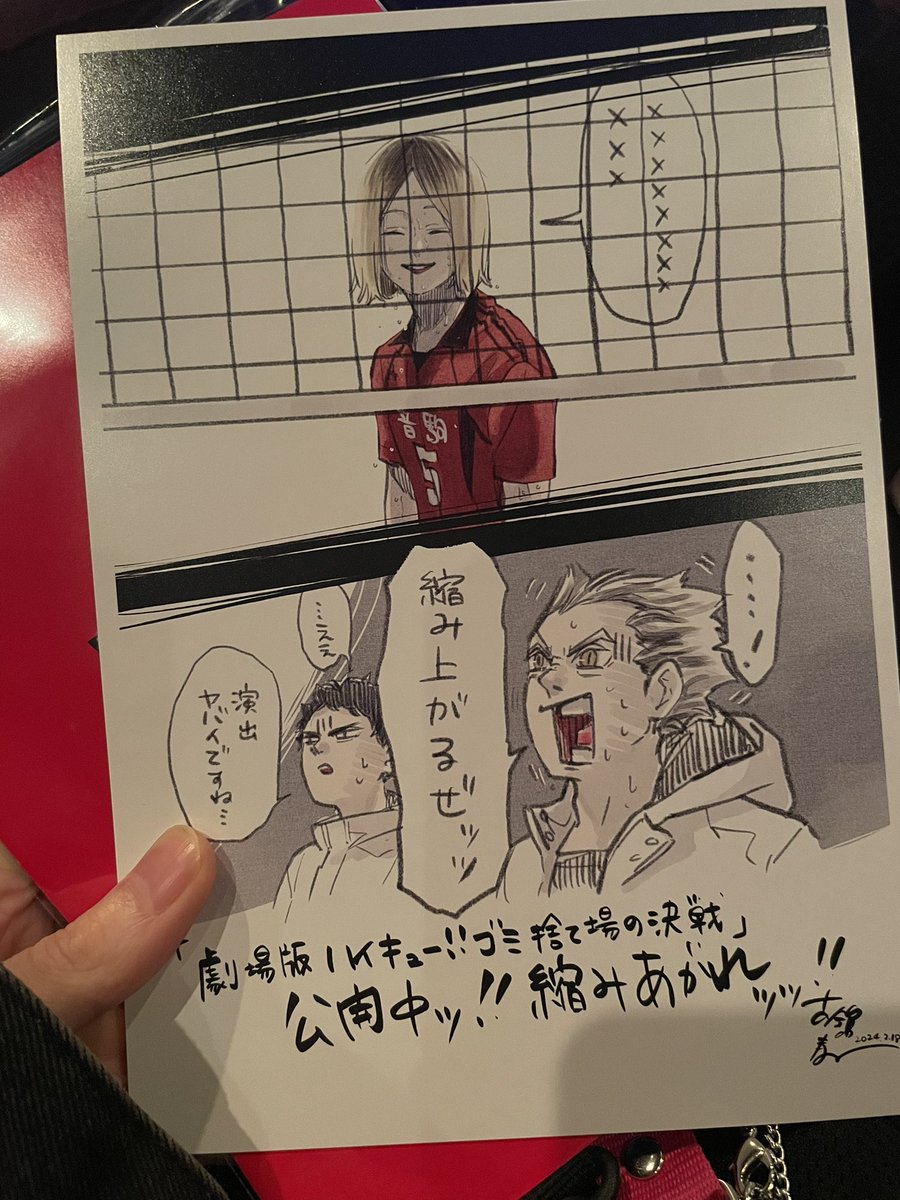 ×××××××
×××
音駒
5
‥‥‥!
縮み上がるぜッッ
‥‥ええ
演出
ヤバイですね‥
「劇場版ハイキュー!!ゴミ捨て場の決戦」
公開中ッ!!縮みあがれッッ!!
古舘
春一
2024.2.18